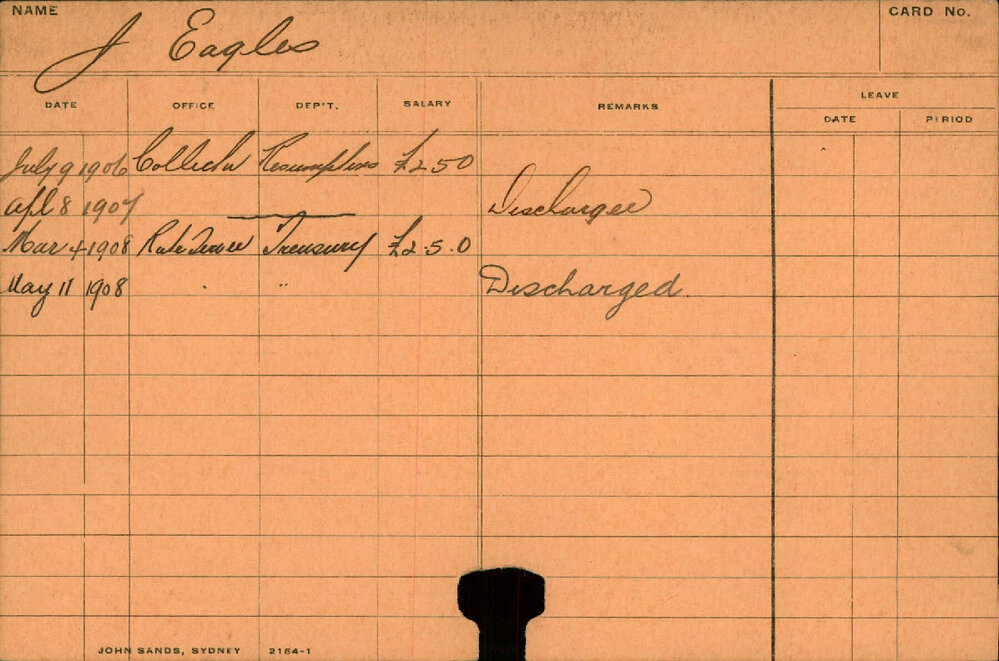 NAME
J Eagles
CARD No.
DATE OFFICE DEP'T. SALARY REMARKS LEAVE
DATE PERIOD
July 9 1906 Collector Resumptions £250
Apl 8 1907 Discharged
Mar 4 1908 Rate Server Treasury £2.5.0
May 11 1908 " " Discharged.
JOHN SANDS, SYDNEY 2164-1